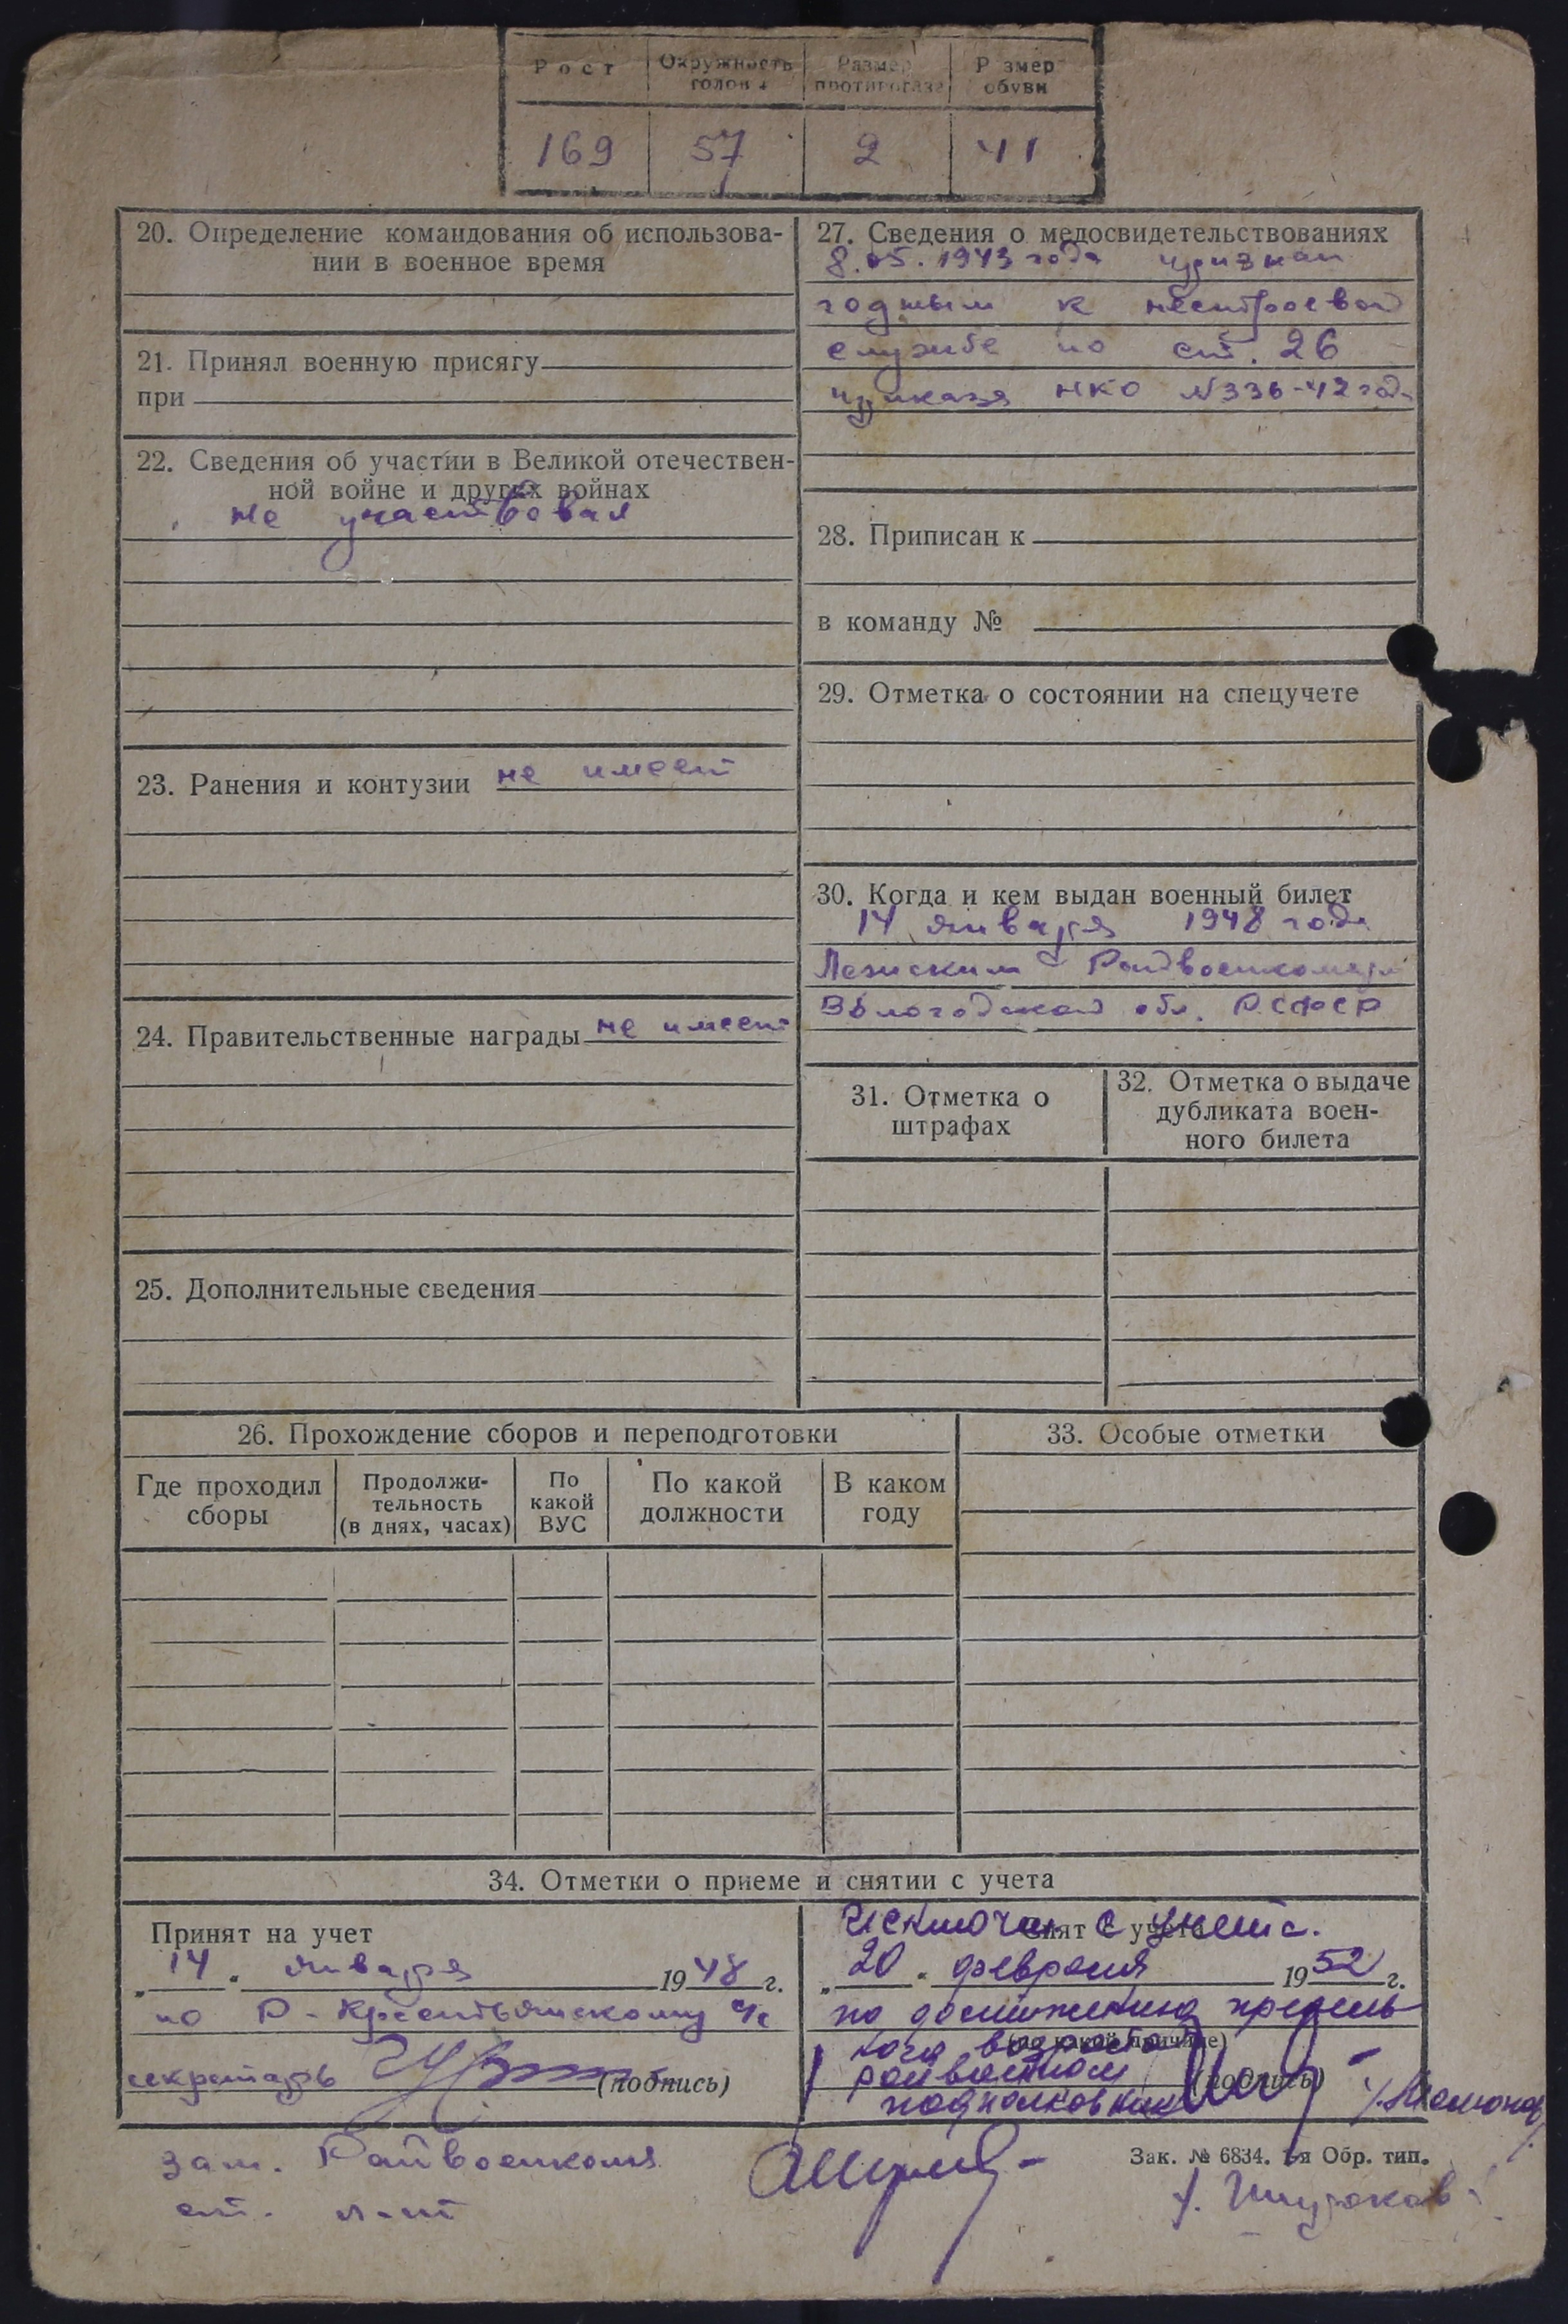 Рост
Окружность головы
Размер противогаза
Размер обуви
169
57
2
41
20. Определение командования об использова-
нии в военное время
21. Принял военную присягу
при
22. Сведения об участии в Великой отечествен-
ной войне и других войнах
не участвовал
23. Ранения и контузии не имеет
24. Правительственные награды не имеет
25. Дополнительные сведения
27. Сведения о медосвидетельствованиях
8.05.1943 года признан
годным к нестроевой
службе по ст. 26
приказа НКО №336-42 год
28. Приписан к
в команду №
29. Отметка о состоянии на спецучете
30. Когда и кем выдан военный билет
14 января 1948 года
Лежским Райвоенкоматом
Вологодской обл. РСФСР
31. Отметка о
штрафах
32. Отметка о выдаче
дубликата воен-
ного билета
26. Прохождение сборов и переподготовки
Где проходил
сборы
Продолжи-
тельность
(в днях, часах)
По
какой
ВУС
По какой
должности
В каком
году
33. Особые отметки
34. Отметки о приеме и снятии с учета
Принят на учет
"14" января 1948 г.
по Р-Крестьянскому с/с
секретарь (подпись)
Исключен с учета.
Снят с учета
"20" февраля 1952 г.
по достижению предель-
ного возраста
(по какой причине)
райвоенком
(подпись)
подполковник
зам. Райвоенкома
ст. л-т
Зак. № 6834. 1-я Обр. тип.